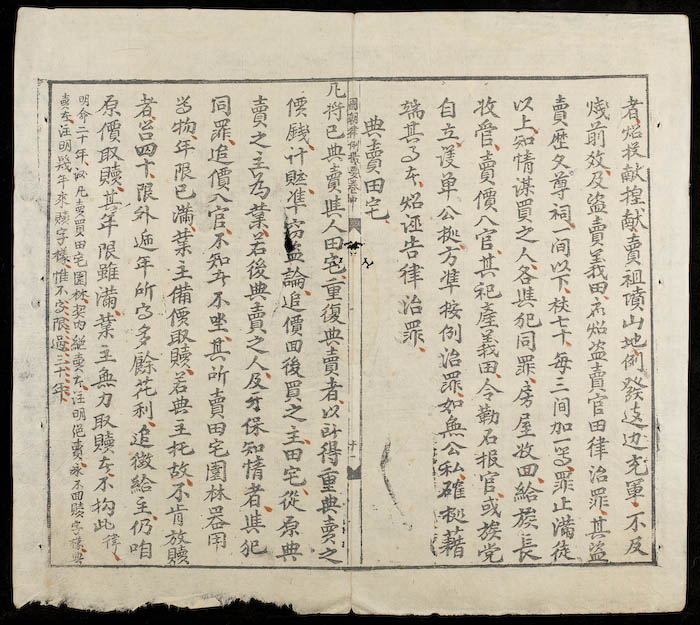 者炤投献捏献賣祖墳山地例發远边充軍不及
前效及盜賣義田應炤盜賣官田律治罪其盜
賣歷久尊祠一間以下杖七十每三間加一等罪止滿徒
以上知情謀買之人各與犯同罪房屋收囬給族長
收管賣價入官其祀產義田令勒石報官或族党
自立議单公㨿方準按例治罪如無公私確㨿藉
端其爭者炤誣告律治罪
典賣田宅
國朝律例撮要卷中
十一
凡将已典賣與人田宅重復典賣者以所得重典賣之
價錢計賍準窃盜論追價囬後買之主田宅從原典
賣之主為業若後典賣之人及牙保知情者與犯
同罪追價入官不知者不坐其所賣田宅園林器用
等物年限已滿業主備價取贖若典主托故不肯放贖
者笞四十限外逓年所㝵多餘花利追徵給主仍听
原價取贖其年限雖滿業主無力取贖者不拘此律
明命二十年議凡賣買田宅園林契內絕賣者注明绝賣永不囬贖字樣典
賣者注明幾年來贖字樣惟不㝎限過三十年